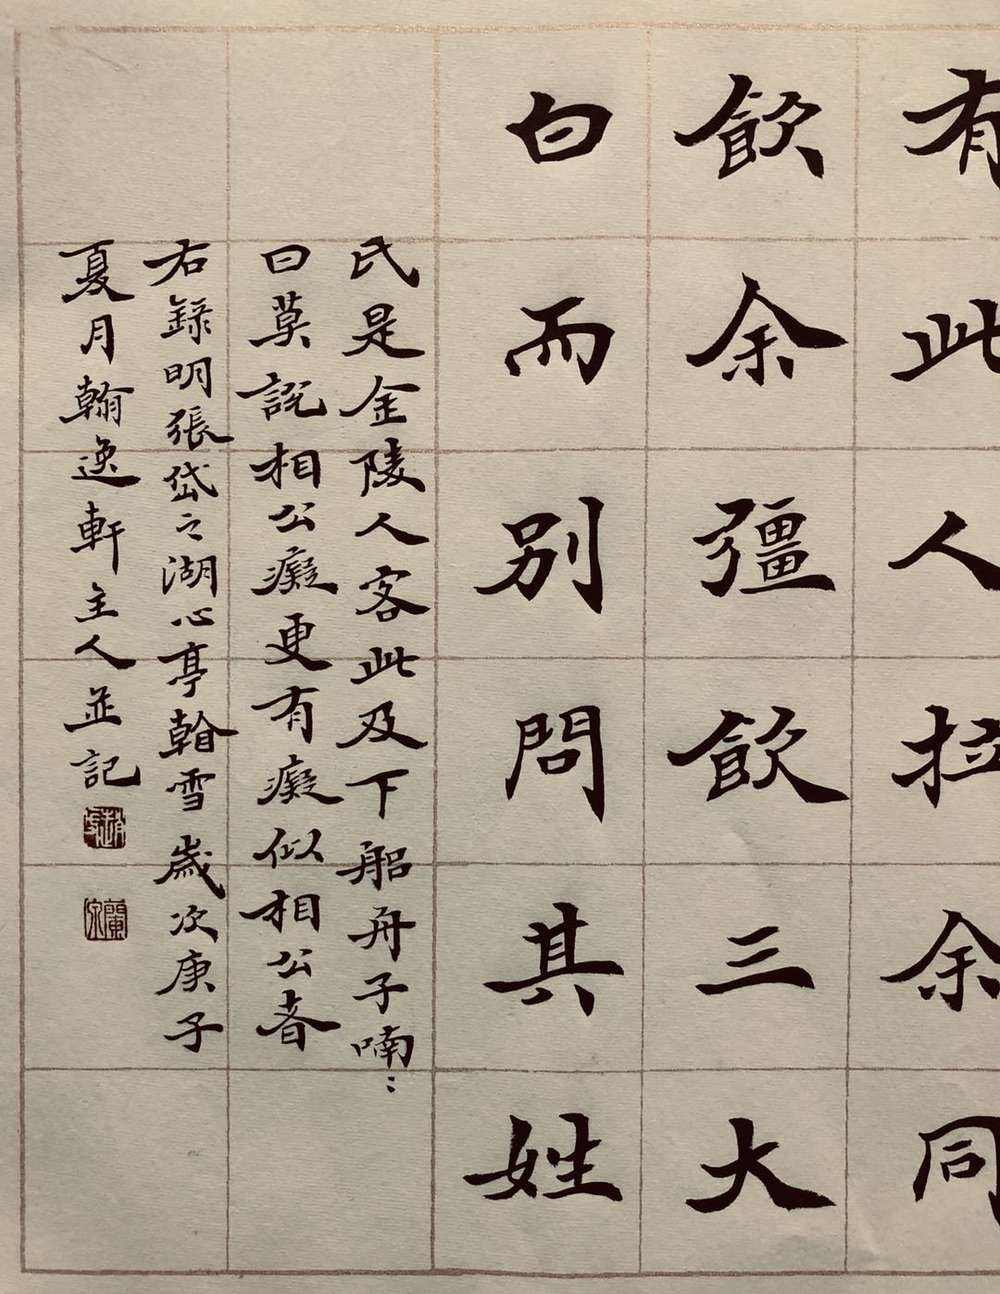 有此人拉余同
飲余彊飲三大
白而別問其姓
氏是金陵人客此及下船舟子喃〻
曰莫說相公癡更有癡似相公者
右錄明張岱之湖心亭看雪歲次庚子
夏月翰逸軒主人並記